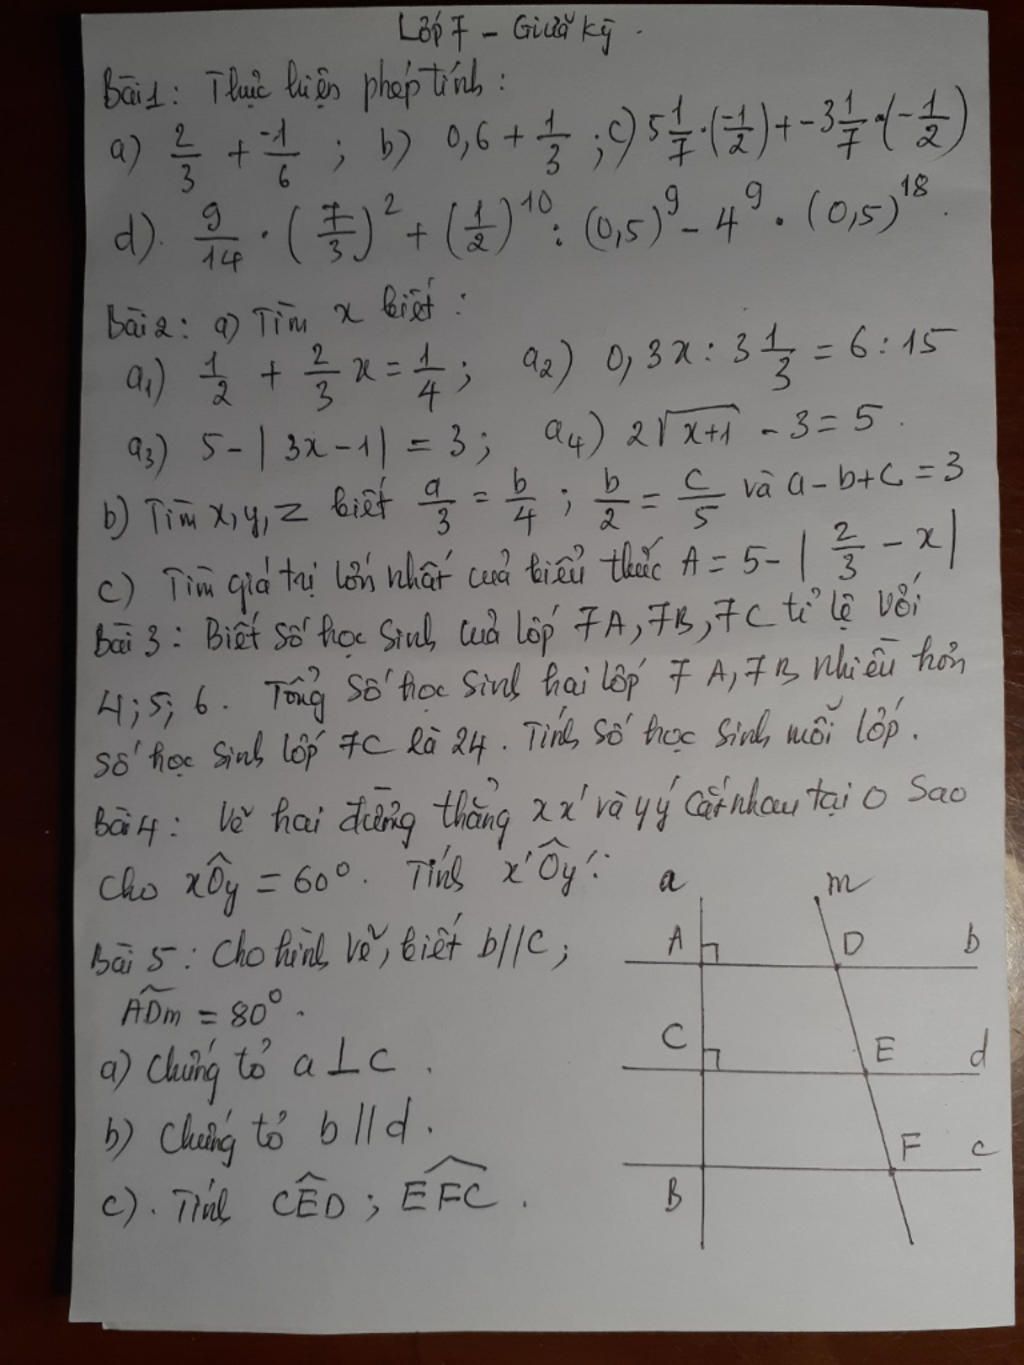 Lớp 7 - Giữa kỳ.
Bài 1: Thực hiện phép tính:
a) 2/3 + -1/6 ; b) 0,6 + 1/3 ; c) 5 1/7 . (-1/2) + -3 1/7 . (-1/2)
d). 9/14 . (7/3)^2 + (1/2)^10 : (0,5)^9 - 4^9 . (0,5)^18.
Bài 2: a) Tìm x biết:
a1) 1/2 + 2/3 x = 1/4 ; a2) 0,3x : 3 1/3 = 6 : 15
a3) 5 - |3x - 1| = 3 ; a4) 2√(x+1) - 3 = 5.
b) Tìm x, y, z biết a/3 = b/4 ; b/2 = c/5 và a - b + c = 3
c) Tìm giá trị lớn nhất của biểu thức A = 5 - |2/3 - x|
Bài 3: Biết số học sinh của lớp 7A, 7B, 7C tỉ lệ với
4; 5; 6. Tổng số học sinh hai lớp 7A, 7B nhiều hơn
số học sinh lớp 7C là 24. Tính số học sinh mỗi lớp.
Bài 4: Vẽ hai đường thẳng xx' và yy' cắt nhau tại O sao
cho xÔy = 60°. Tính x'Ôy'.
Bài 5: Cho hình vẽ, biết b//c;
ADm = 80°.
a) Chứng tỏ a ⊥ c.
b) Chứng tỏ b // d.
c). Tính CÊD ; EFC.
a m
A D b
C E d
F c
B